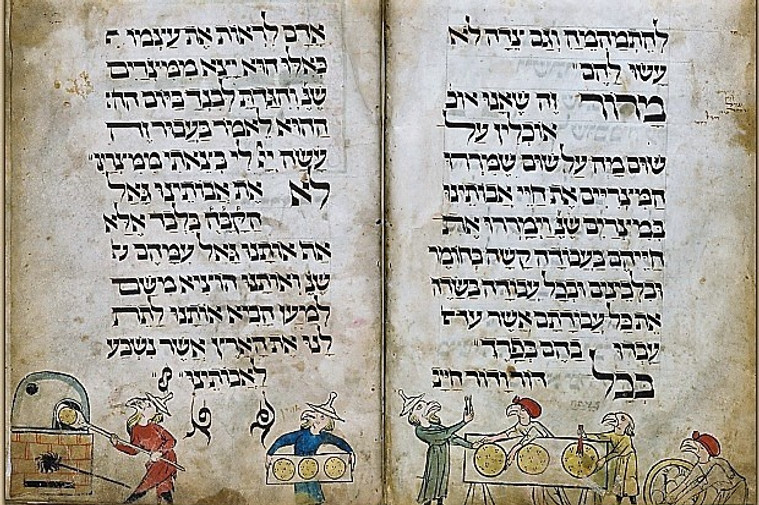 להתמהמה וגם צדה לא
עשו להם
מרור זה שאנו אוכ
אוכלין על
שום מה על שום שמררו
המצריים את חיי אבותינו
במצרים שנ' וימררו את
חייהם בעבודה קשה בחומר
ובלבנים ובכל עבודה בשדה
את כל עבודתם אשר
עבדו בהם בפרך
בכל דור ודור חייב
אדם לראות את עצמו
כאלו הוא יצא ממצרים
שנ' והגדת לבנך ביום הה
ההוא לאמר בעבור זה
עשה יי לי בצאתי ממצרים
לא את אבותינו גאל
הקבה בלבד אלא
את אותנו גאל עמהם ש
שנ' ואותנו הוציא משם
למען הביא אותנו לתת
לנו את הארץ אשר נשבע
לאבותינו